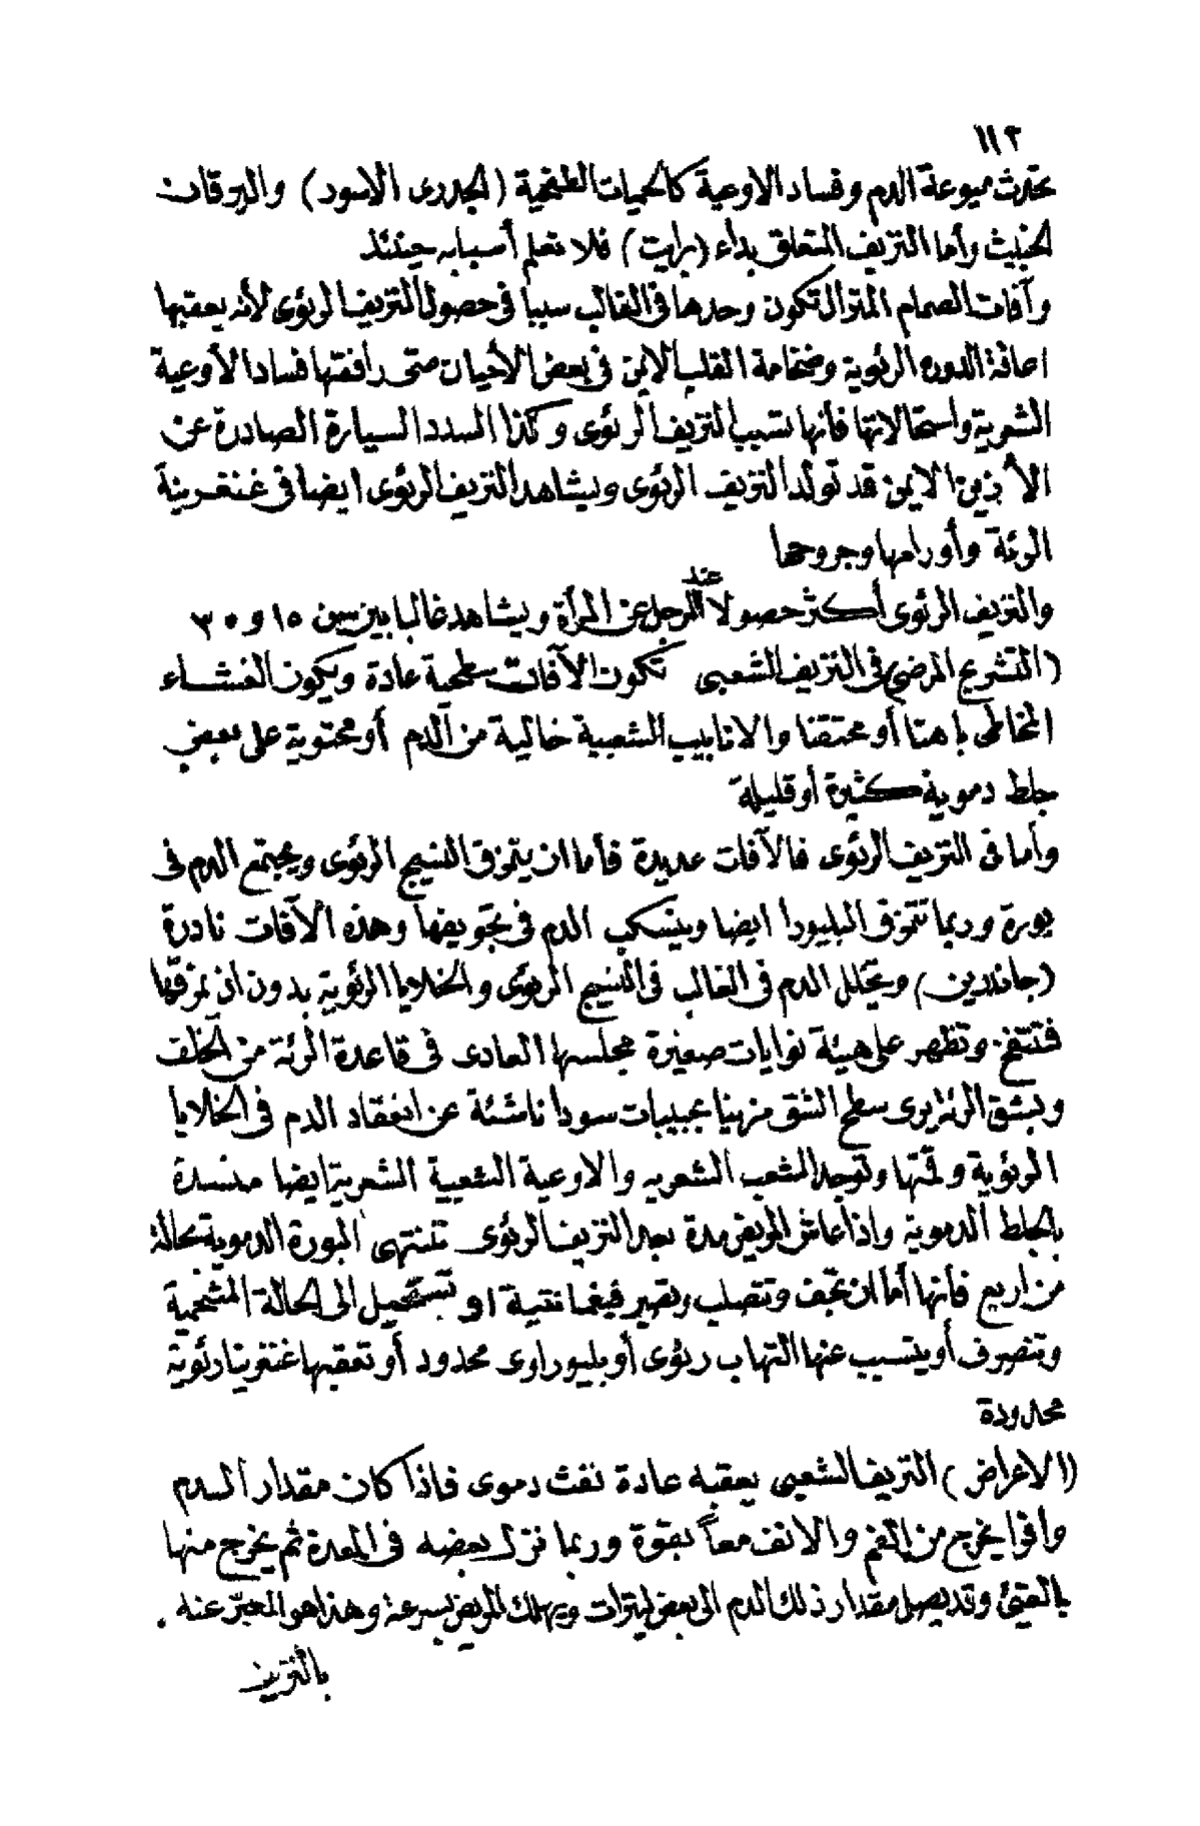 ١١٢
تحدث ميوعة الدم وفساد الاوعية كالحميات الطفحية (الجدرى الاسود) واليرقان
الخبيث وأما النزيف المتعلق بداء (برايت) فلا نعلم أسبابه حينئذ
وآفات الصمام المترالى تكون وحدها فى الغالب سببا فى حصول النزيف الرئوى لأنه يعقبها
اعاقة الدورة الرئوية وضخامة القلب الايمن فى بعض الأحيان متى رافقتها فساد الأوعية
الشعرية واستحالاتها فأنها تسبب النزيف الرئوى وكذا السدد السيارة الصادرة عن
الأذين الايمن قد تولد النزيف الرئوى ويشاهد النزيف الرئوى ايضا فى غنغرينة
الرئة وأورامها وجروحها
والنزيف الرئوى أكثر حصولا عند الرجل عن المرأة ويشاهد غالبا بين سن ١٥ و ٣٠
(التشريح المرضى) فى النزيف الشعبى تكون الآفات سطحية عادة ويكون الغشاء
المخاطى باهتا أو محتقنا والانابيب الشعبية خالية من الدم أو محتوية على بعض
جلط دموية كثيرة أو قليلة
وأما فى النزيف الرئوى فالآفات عديدة فأما ان يتمزق النسيج الرئوى ويجتمع الدم فى
بورة وربما تتمزق البليورا ايضا وينسكب الدم فى تجويفها وهذه الآفات نادرة
(جاندرين) ويتخلل الدم فى الغالب فى النسيج الرئوى والخلايا الرئوية بدون ان يمزقها
فتنتفخ وتظهر على هيئة نوايات صغيرة مجلسها العادى فى قاعدة الرئة من الخلف
وبشق الرئة يرى سطح الشق مزينا بحبيبات سودا ناشئة عن انعقاد الدم فى الخلايا
الرئوية ولمتها وتوجد الشعب الشعريه والاوعية الشعبية الشعرية ايضا منسدة
بالجلط الدموية واذا عاش المريض مدة بعد النزيف الرئوى تنتهى البورة الدموية بحالة
من اربع فأنها أما ان تجف وتتصلب وتصير فيغما نتية او تستحيل الى الحالة الشحمية
وتنصرف أو يتسبب عنها التهاب رئوى أو بليوراوى محدود أو تعقبها غنغرينا رئوية
محدودة
(الاعراض) النزيف الشعبى يعقبه عادة نفث دموى فاذا كان مقدار الدم
وافرا يخرج من الفم والانف معاً بقوة وربما نزل بعضه فى المعدة ثم يخرج منها
بالقيئ وقد يصل مقدار ذلك الدم الى بعض ليترات ويهلك المريض بسرعة وهذا هو المعبر عنه .
بالنزيف